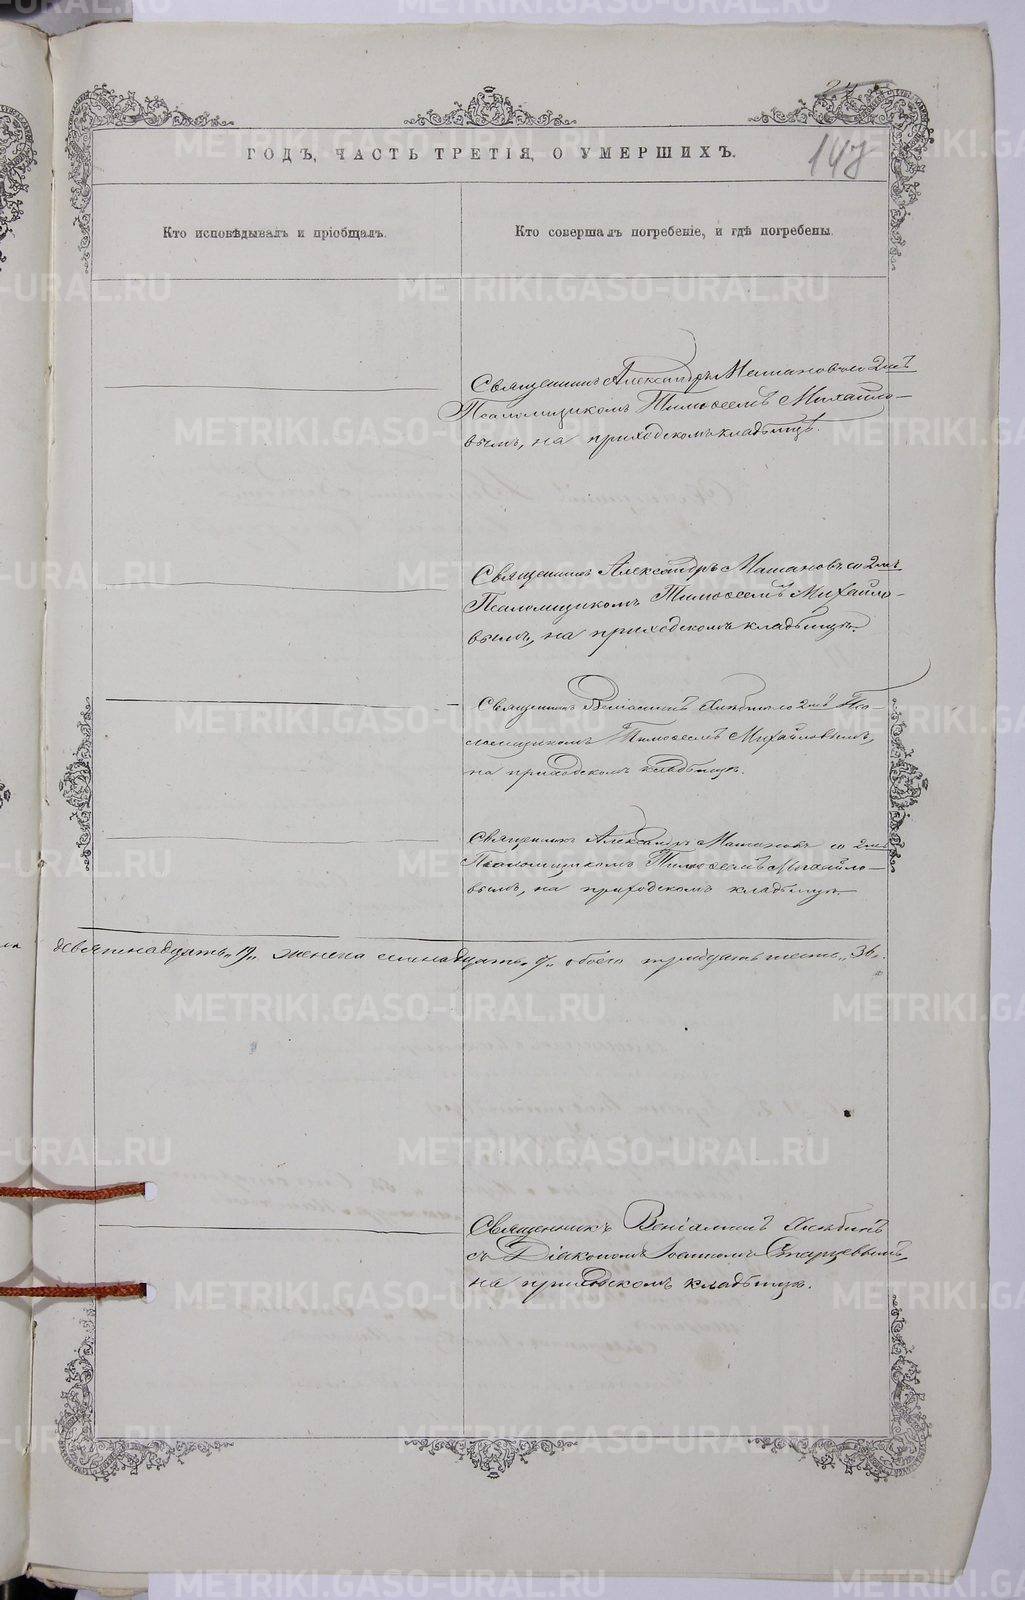 147
ГОДЪ, ЧАСТЬ ТРЕТІЯ, О УМЕРШИХЪ.
Кто исповѣдывалъ и пріобщалъ.
Кто совершалъ погребеніе, и гдѣ погребены.
Священникъ Александръ Машановъ со 2мъ
Псаломщикомъ Тимоѳеемъ Михайло-
вымъ, на приходскомъ кладбищѣ.
Священникъ Александръ Машановъ со 2мъ
Псаломщикомъ Тимоѳеемъ Михайло-
вымъ, на приходскомъ кладбищѣ.
Священникъ Веніаминъ Хлѣбинъ со 2мъ Пса-
ломщикомъ Тимоѳеемъ Михайловымъ,
на приходскомъ кладбищѣ.
Священникъ Александръ Машановъ со 2мъ
Псаломщикомъ Тимоѳеемъ Михайло-
вымъ, на приходскомъ кладбищѣ.
девятнадцать женска семнадцать обоего тридцать шесть „36„.
Священникъ Веніаминъ Хлѣбинъ
съ Діакономъ Іоанномъ Старцевымъ,
на приходскомъ кладбищѣ.
METRIKI.GASO-URAL.RU